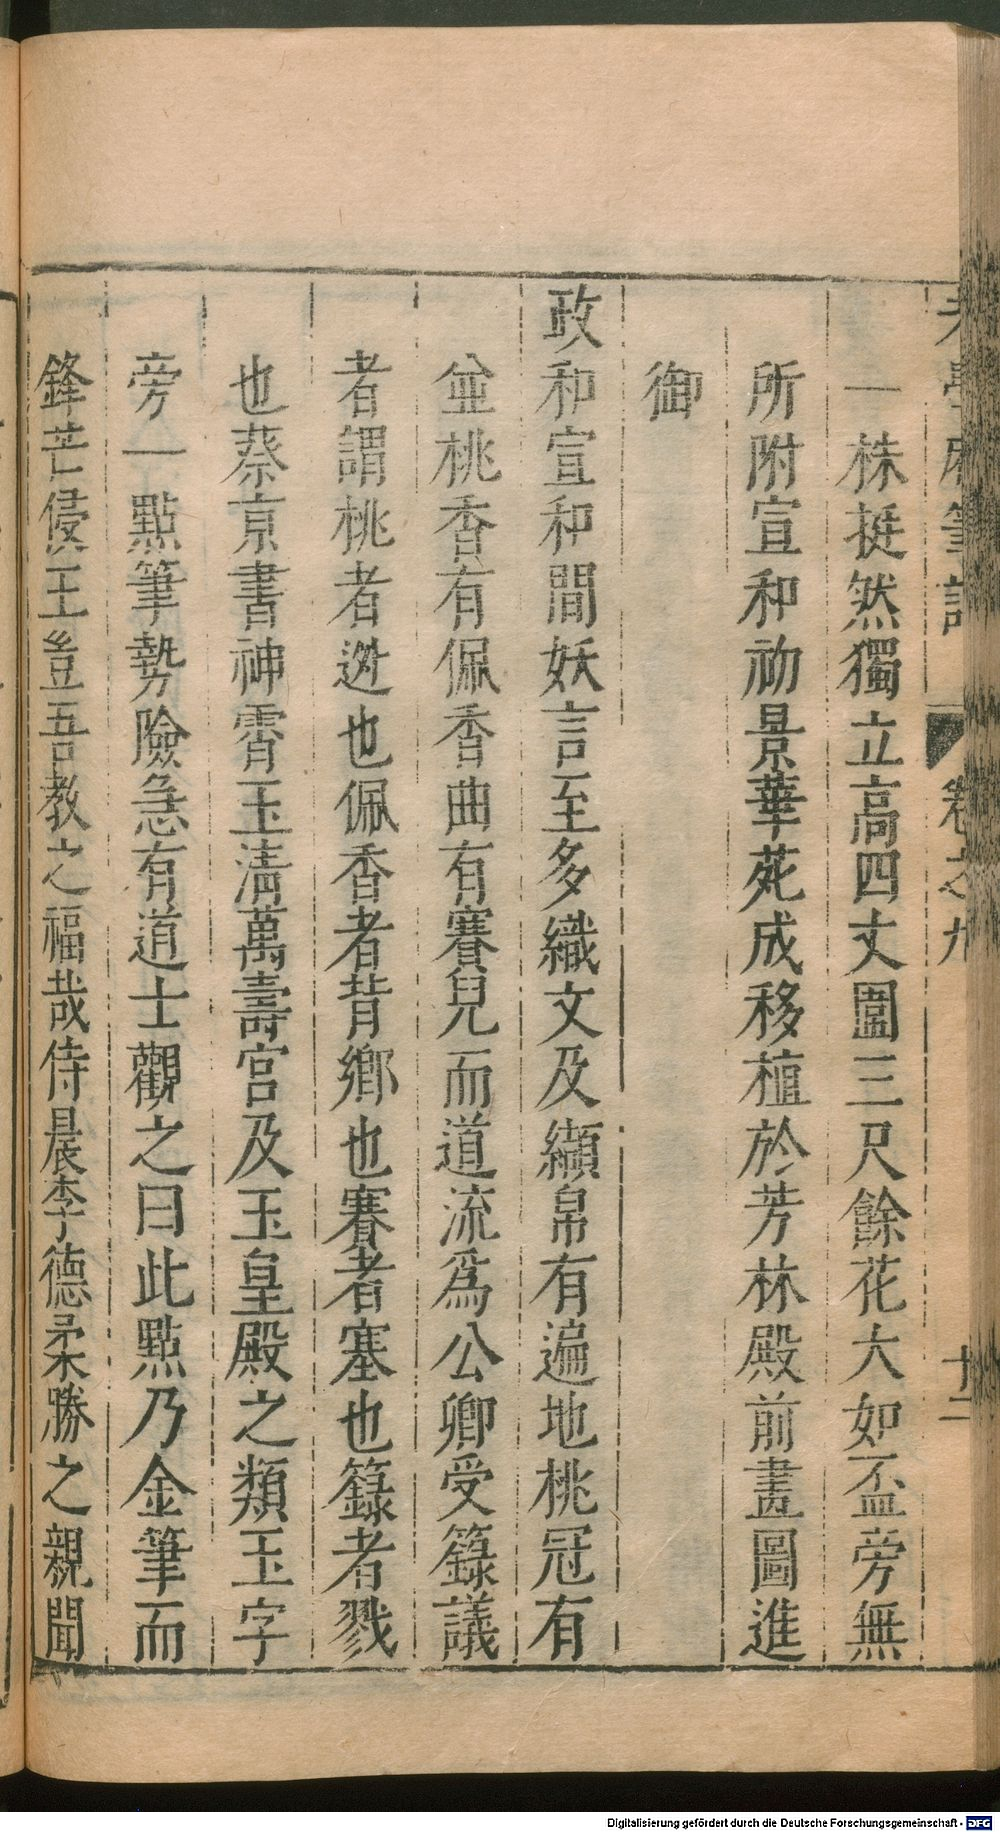 老學庵筆記 卷之九 十二
一株挺然獨立高四丈圍三尺餘花大如盃旁無
所附宣和初景華苑成移植於芳林殿前畫圖進
御
政和宣和間妖言至多織文及纈帛有遍地桃冠有
並桃香有佩香曲有賽兒而道流爲公卿受籙議
者謂桃者逃也佩香者背鄉也賽者塞也籙者戮
也蔡京書神霄玉淸萬壽宮及玉皇殿之類玉字
旁一點筆勢險急有道士觀之曰此點乃金筆而
鋒芒侵王豈吾教之福哉侍晨李德柔勝之親聞
Digitalisierung gefördert durch die Deutsche Forschungsgemeinschaft - DFG